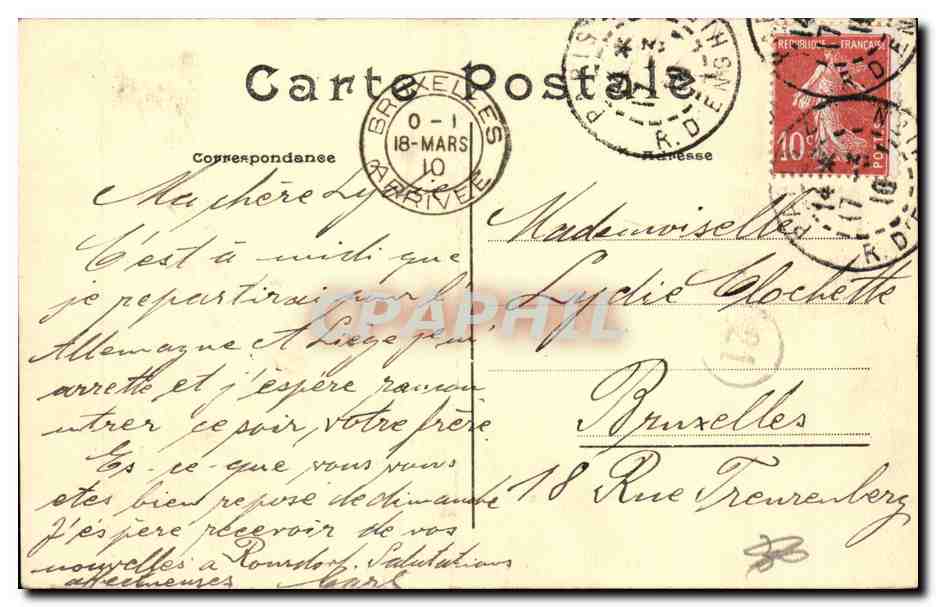 Carte Postale
Correspondance
Adresse
BRUXELLES
0-1
18-MARS
10
ARRIVÉE
PARIS
R. D'ENGHIEN
REPUBLIQUE FRANÇAISE
10c
POSTES
14 *
17 3
10
R. D'EN
Ma chère Lydie
C'est à midi que
je repartirai pour l'
Allemagne A Liège je m'
arrette et j'éspère rancon
utrer ce soir, votre frère
Es-ce-que vous vous
etes bien reposé de dimanche
J'éspère recevoir de vos
nouvelles à Ronsdorf. Salutations
affectueuses Carl
Mademoiselle
Lydie Clochette
Bruxelles
18 Rue Treurenberg
12
CPAPHIL